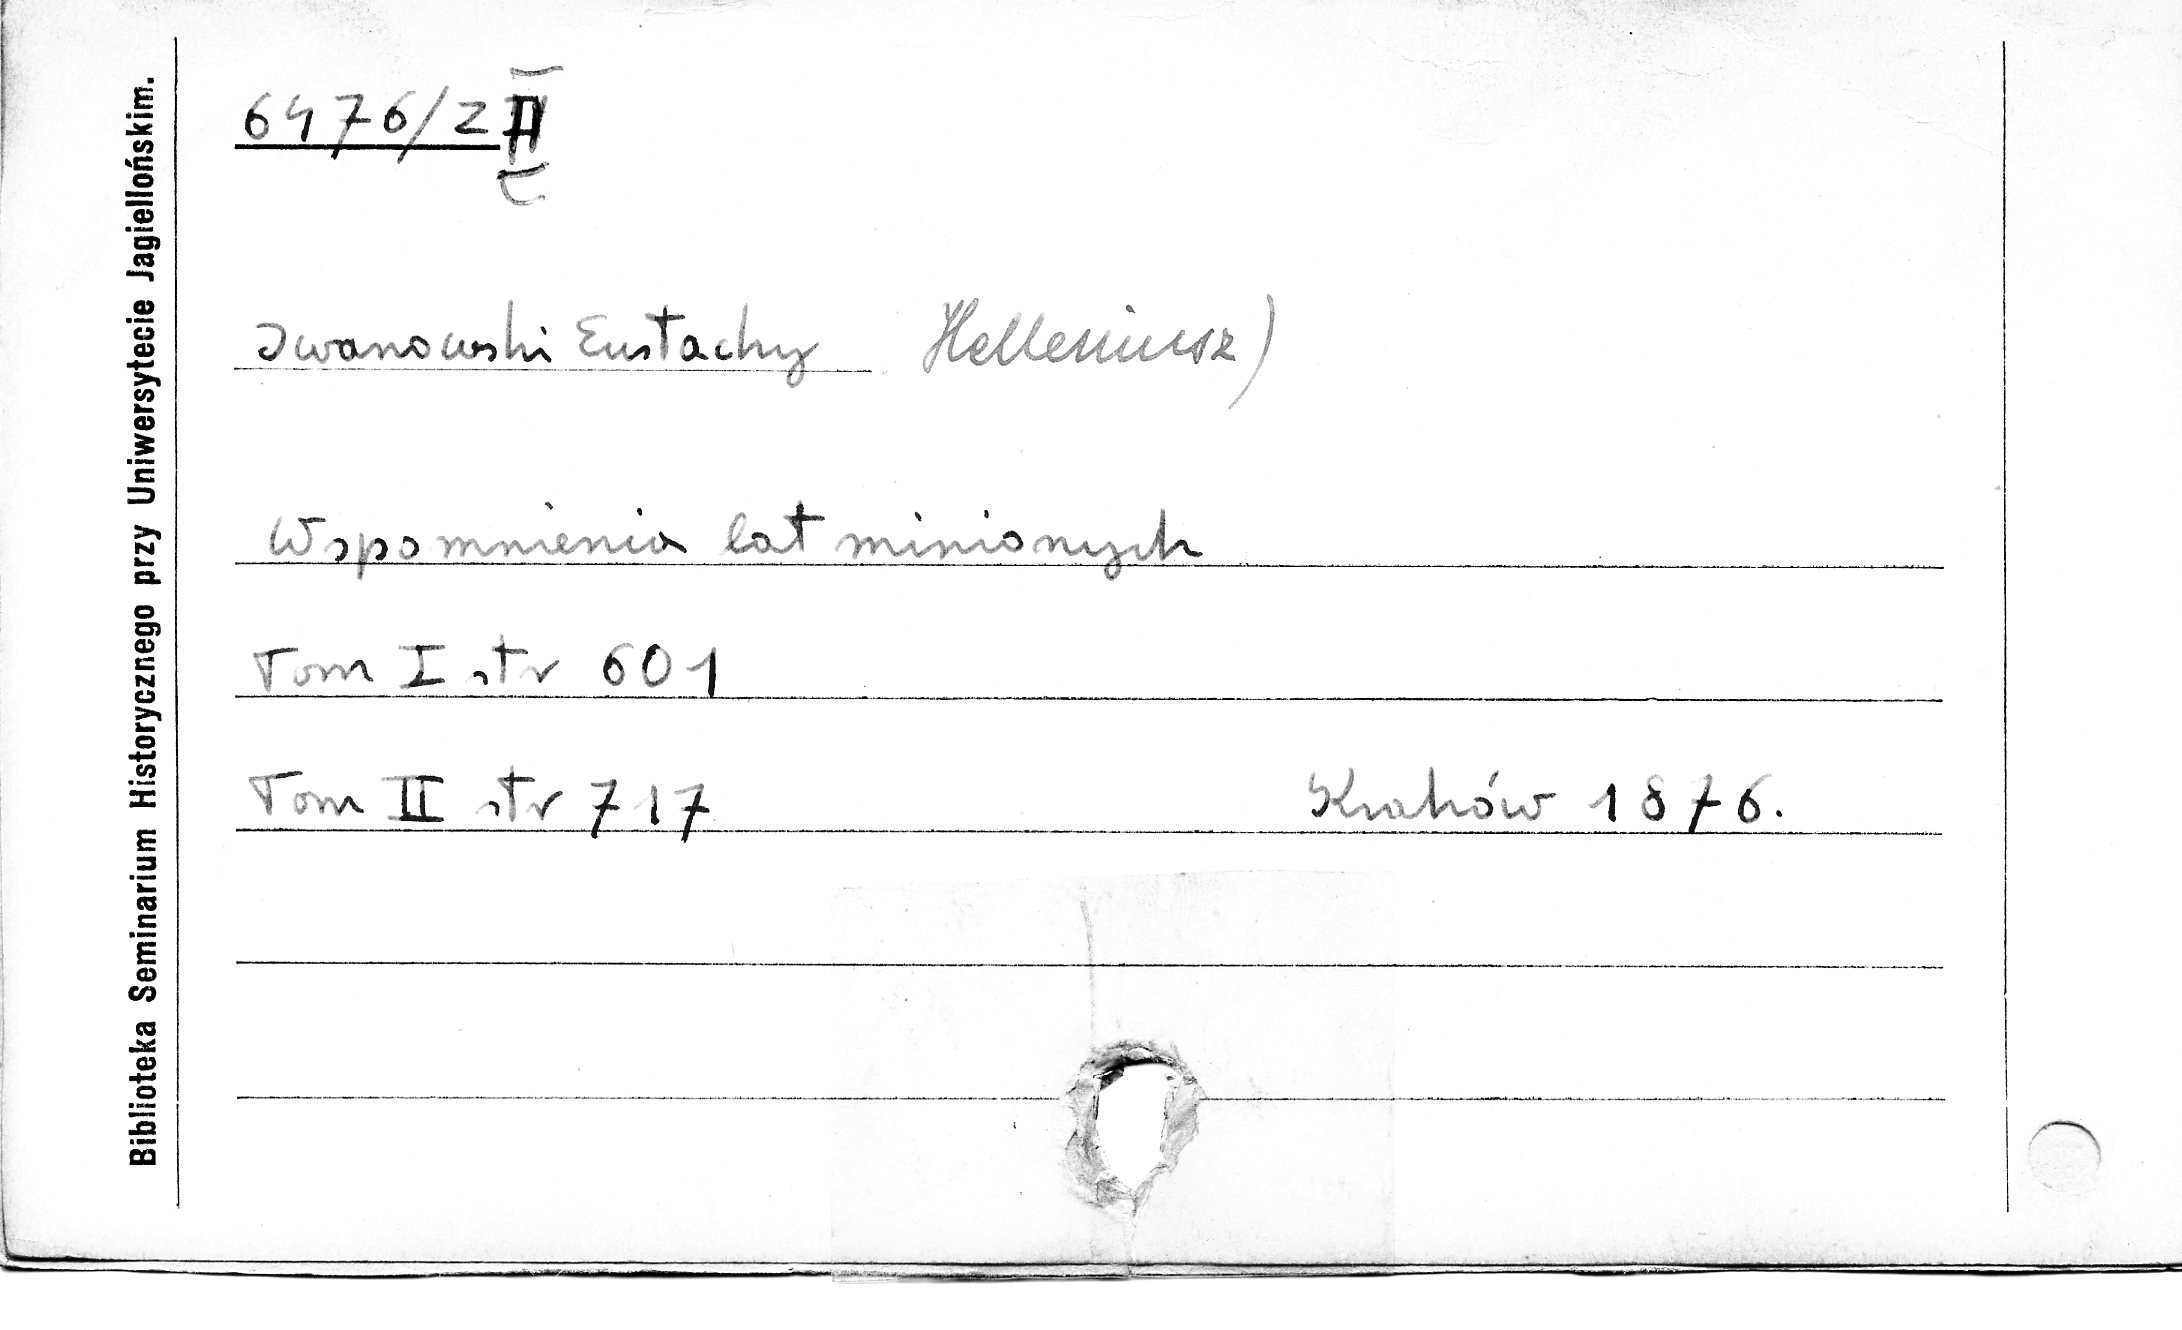 6476/2 II
Iwanowski Eustachy Helleniusz)
Wspomnienia lat minionych
Tom I str 601
Tom II str 717 Kraków 1876.
Biblioteka Seminarium Historycznego przy Uniwersytecie Jagiellońskim.